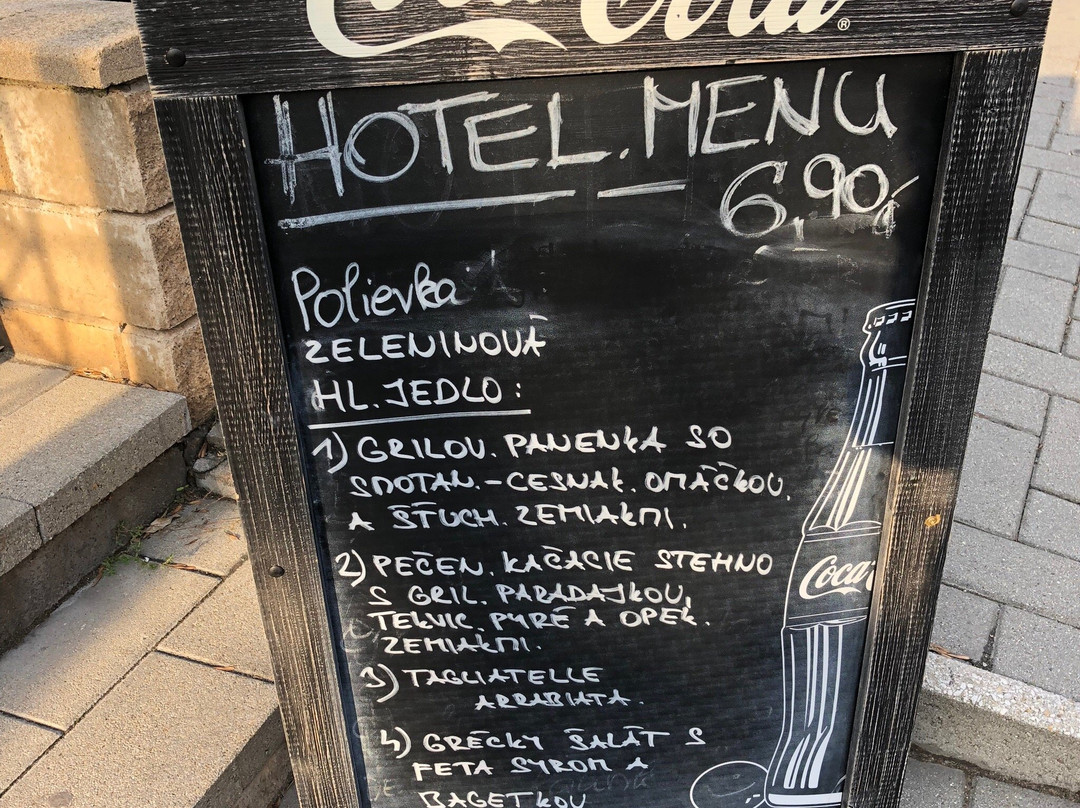 Coca-Cola®
HOTEL. MENU
6,90€
Polievka
ZELENINOVÁ
HL. JEDLO:
1) GRILOV. PANENKA SO
SMOTAN.-CESNAK. OMÁČKOU,
A ŠŤUCH. ZEMIAKMI.
2) PEČEN. KAČACIE STEHNO
S GRIL. PARADAJKOU,
TEKVIC. PYRÉ A OPEK.
ZEMIAKMI.
3) TAGLIATELLE
ARRABIATA.
4) GRÉCKY ŠALÁT S
FETA SYROM A
BAGETKOU
Coca